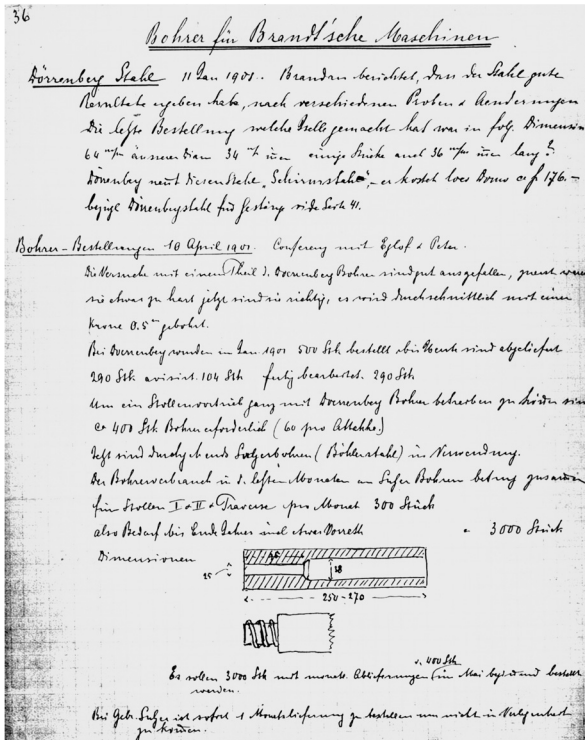 36
Bohrer für Brandt'sche Maschinen
Dörrenberg Stahl 11 Jan 1901. Brandau berichtet, dass der Stahl gute
Resultate ergeben habe, nach verschiedenen Proben & Aenderungen
die letzte Bestellung welche Iselle gemacht hat war in folg. Dimension
64 m/m äusserer Diam 34 m/m innen einige Stücke auch 36 m/m innen lang
Dörrenberg nennt diesen Stahl "Schirmstahl", er kostet loco Domo fr 176.-
bezügl Dörrenbergstahl für Gesting vide Seite 41.
Bohrer-Bestellungen 10 April 1901. Conferenz mit Eglof & Peter.
Die Versuche mit einem Theil d. Doerrenberg Bohrer sind gut ausgefallen, zuerst waren
sie etwas zu hart jetzt sind sie richtig, es wird durchschnittlich mit einer
Krone 0.5 m gebohrt.
Bei Doerrenberg wurden im Jan 1901 500 Stk bestellt, bis heute sind abgeliefert
290 Stk avisirt 104 Stk fertig bearbeitet 290 Stk
Um ein Stollenvortrieb ganz mit Doerrenberg Bohrer betreiben zu können sind
ca 400 Stk Bohrer erforderlich (60 pro Attakke.)
Jetzt sind durchgehends Sulzerbohrer (Böhlerstahl) in Verwendung.
Der Bohrerverbrauch in d. letzten Monaten an Sulzer Bohrer betrug zusammen
für Stollen I & II & Traverse pro Monat 300 Stück
also Bedarf bis Ende Jahres incl etwas Vorrath 3000 Stück
Dimensionen
45
25
38
250-270
v. 400 Stk
Es sollen 3000 Stk mit monatl. Ablieferungen im Mai beginnend bestellt
werden.
Bei Gebr. Sulzer ist sofort 1 Monatslieferung zu bestellen um nicht in Verlegenheit
zu kommen.